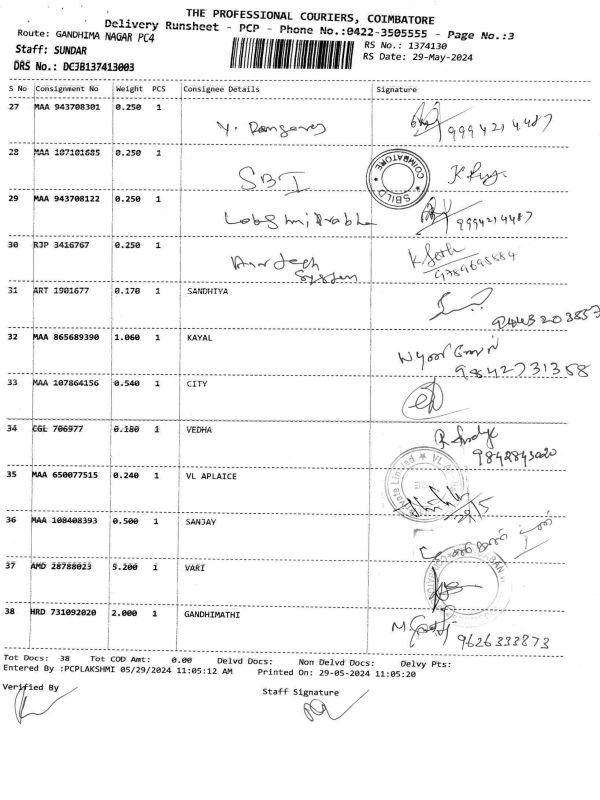 THE PROFESSIONAL COURIERS, COIMBATORE
Delivery Runsheet - PCP - Phone No.:0422-3505555 - Page No.:3
Route: GANDHIMA NAGAR PC4
RS No.: 1374130
Staff: SUNDAR
RS Date: 29-May-2024
DRS No.: DCJB137413003
S No Consignment No Weight PCS Consignee Details Signature
27 MAA 943708301 0.250 1
9994214487
28 MAA 107101685 0.250 1 SBI
COIMBATORE SBILD
29 MAA 943708122 0.250 1
9994214487
30 RJP 3416767 0.250 1
System
9789698884
31 ART 1901677 0.170 1 SANDHIYA
32 MAA 865689390 1.060 1 KAYAL
9842731358
33 MAA 107864156 0.540 1 CITY
34 CGL 706977 0.180 1 VEDHA
9842843020
35 MAA 650077515 0.240 1 VL APLAICE
29/5
36 MAA 108408393 0.500 1 SANJAY
37 AMD 28788023 5.200 1 VARI
38 HRD 731092020 2.000 1 GANDHIMATHI
9626333873
Tot Docs: 38 Tot COD Amt: 0.00 Delvd Docs: Non Delvd Docs: Delvy Pts:
Entered By :PCPLAKSHMI 05/29/2024 11:05:12 AM Printed On: 29-05-2024 11:05:20
Verified By
Staff Signature